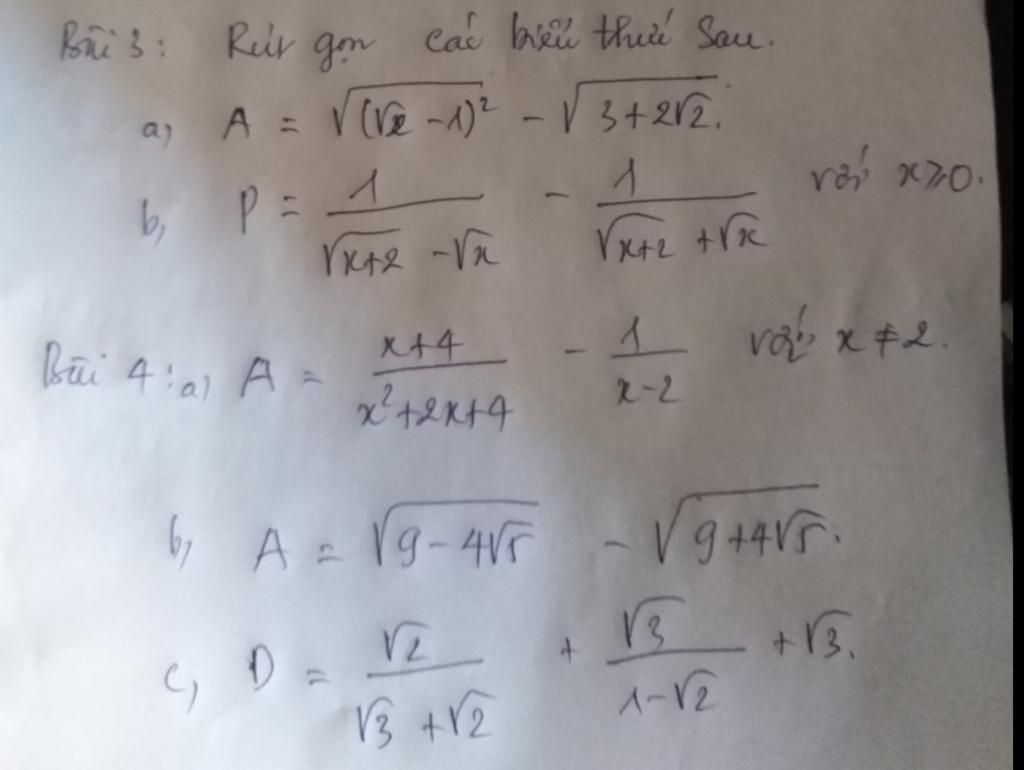 Bài 3: Rút gọn các biểu thức sau.
a) A = √((√2 - 1)²) - √(3+2√2).
b, P = 1/(√(x+2) - √x) - 1/(√(x+2) + √x) với x ≥ 0.
Bài 4: a) A = (x+4)/(x²+2x+4) - 1/(x-2) với x ≠ 2.
b, A = √(9 - 4√5) - √(9+4√5).
c, D = √2/(√3 + √2) + √3/(1-√2) + √3.